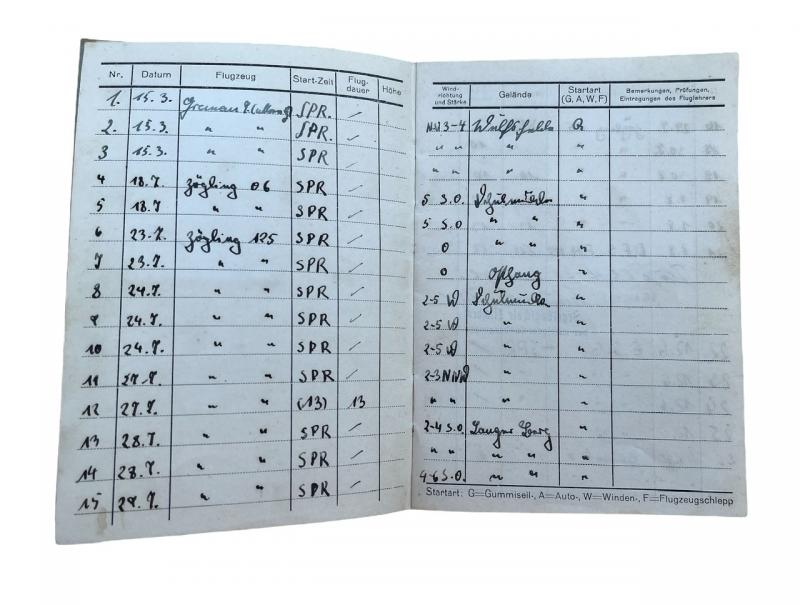 Nr. Datum Flugzeug Start-Zeit Flug-dauer Höhe
1. 15.3. SPR.
2. 15.3. " " SPR.
3 15.3. " " SPR
4 18.7. Zögling 06 SPR
5 18.7 " " SPR
6 23.7. Zögling 125 SPR
7 23.7. " " SPR
8 24.7. " " SPR
9 24.7. " " SPR
10 24.7. " " SPR
11 27.7. " " SPR
12 27.7. " " (13) 13
13 28.7. " " SPR
14 28.7. " " SPR
15 28.7. " " SPR
Wind-richtung und Stärke Gelände Startart (G, A, W, F) Bemerkungen, Prüfungen, Eintragungen des Fluglehrers
NW 3-4 G
" " " " "
" " " " "
5 S.O. "
5 S.O. " " "
0 " " "
0 "
2-5 W "
2-5 W " "
2-5 W " "
2-3 NNW " "
" " " "
2-4 S.O. Langer Berg "
" " " " "
4-6 S.O. " " "
Startart: G=Gummiseil-, A=Auto-, W=Winden-, F=Flugzeugschlepp